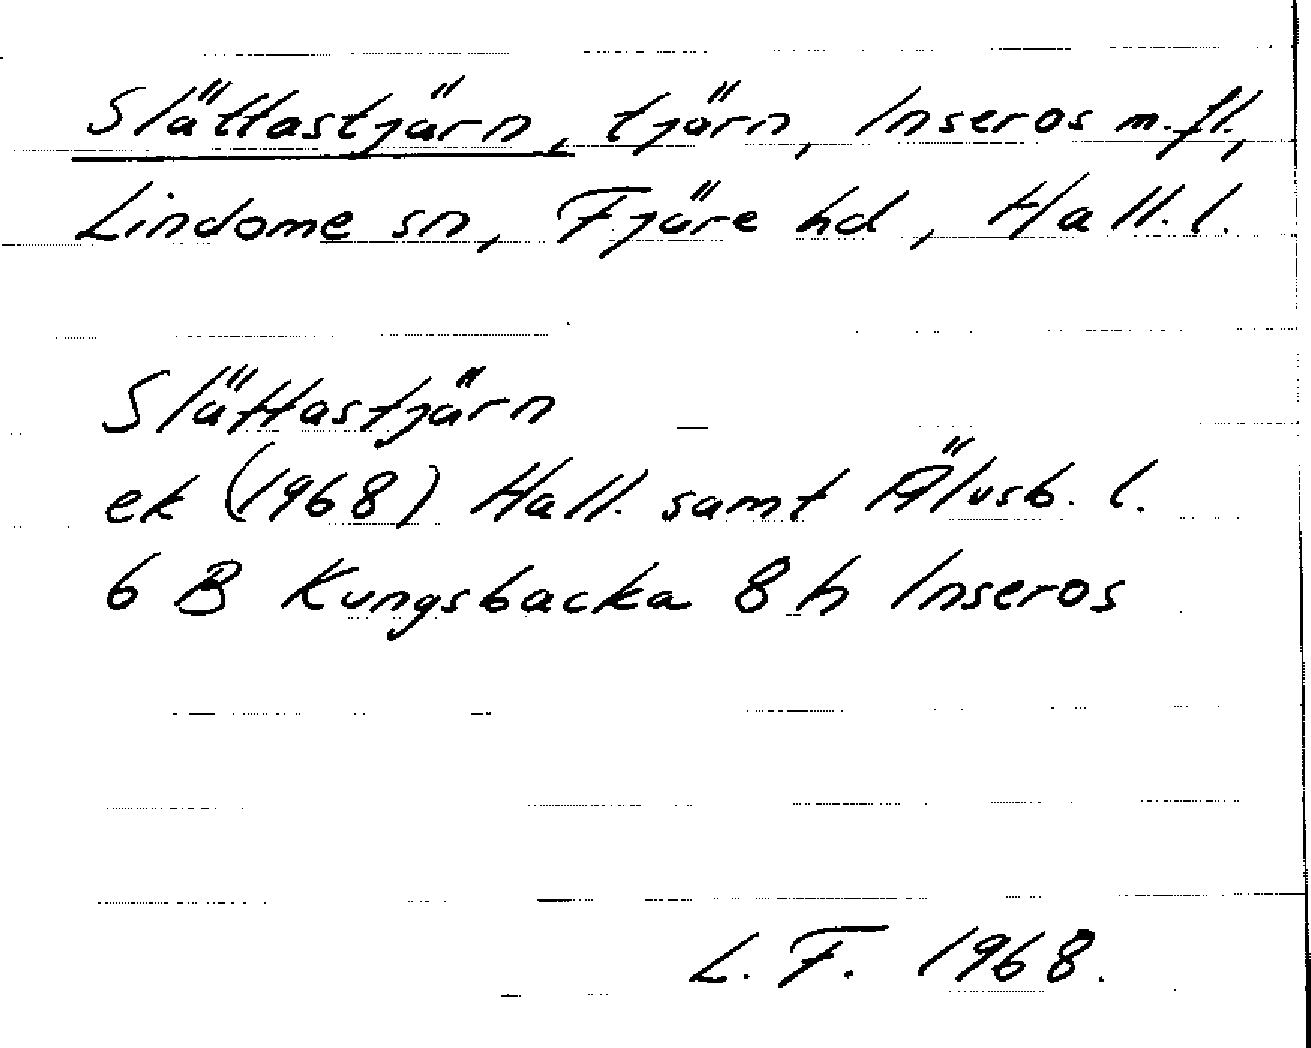 Slättastjärn, tjärn, Inseros m.fl.,
Lindome sn, Fjäre hd, Hall. l.
Slättastjärn
ek (1968) Hall. samt Älvsb. l.
6 B Kungsbacka 8 h Inseros
L. F. 1968.